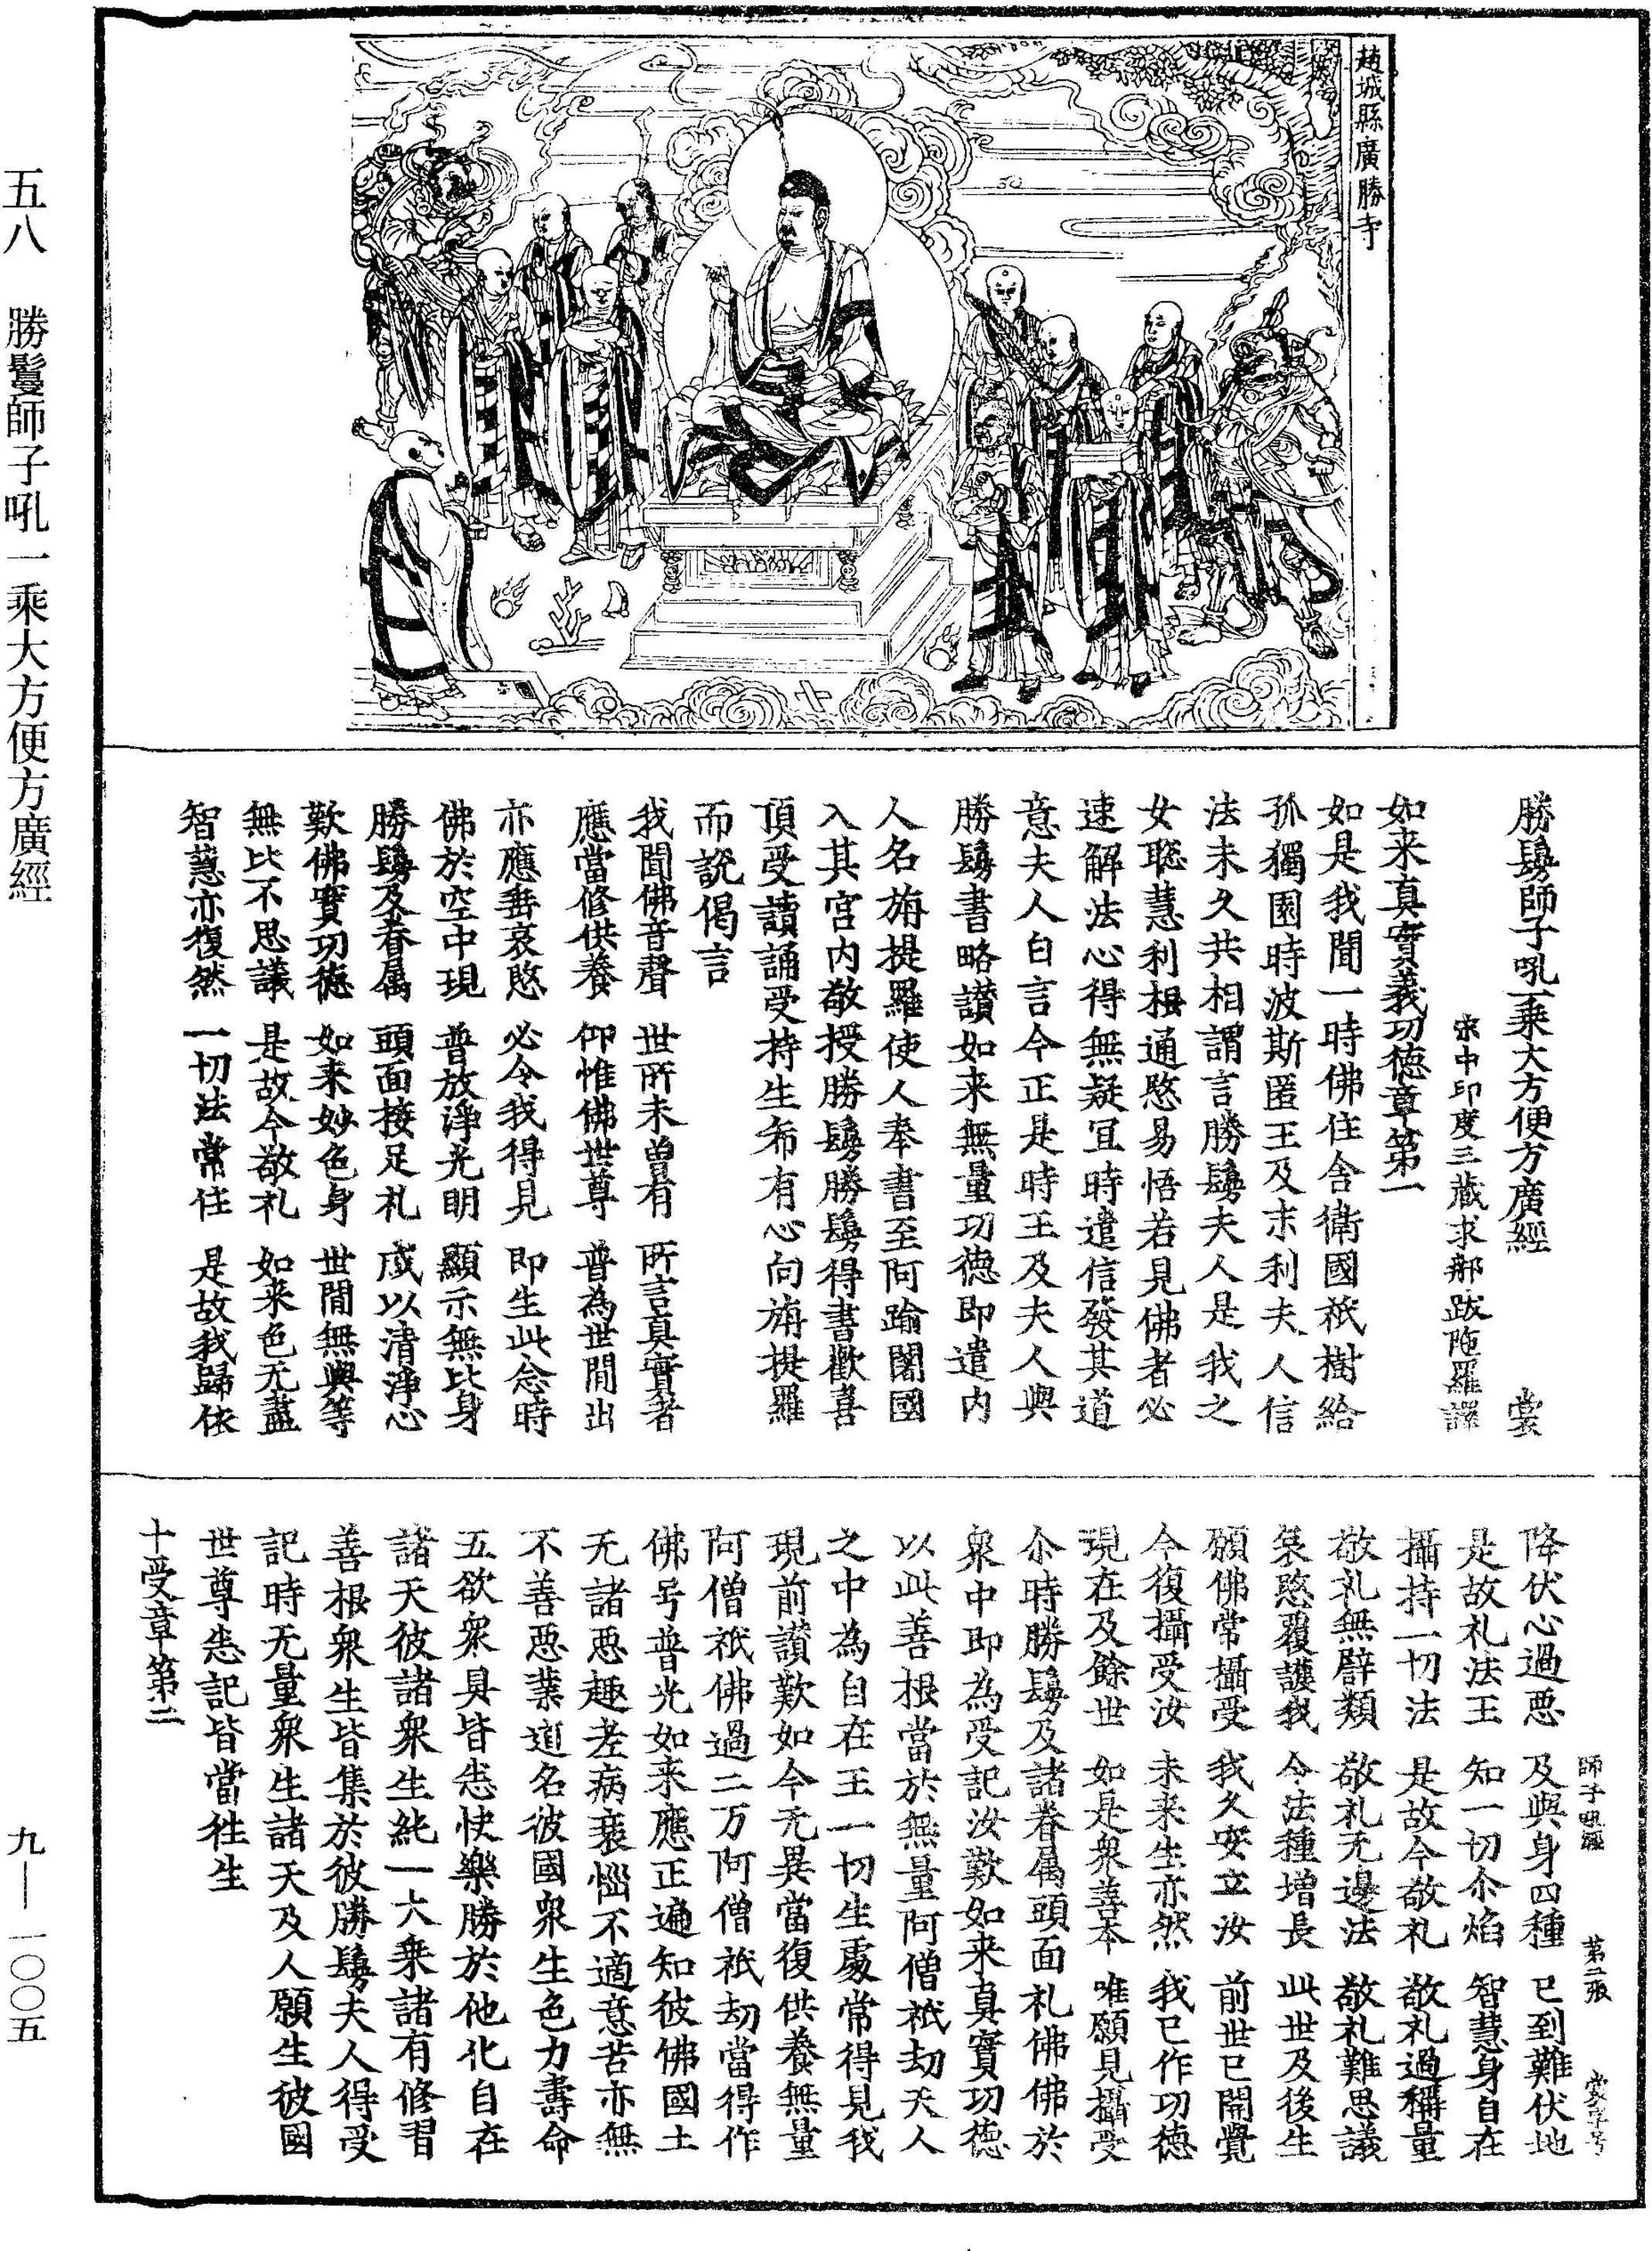 趙城縣廣勝寺
勝鬘師子吼一乘大方便方廣經　裳
宋中印度三藏求那跋陁羅譯
如来真實義功德章第一
如是我聞一時佛住舍衛國祇樹給
孤獨園時波斯匿王及末利夫人信
法未久共相謂言勝鬘夫人是我之
女聡慧利根通愍易悟若見佛者必
速解法心得無疑冝時遣信發其道
意夫人白言今正是時王及夫人與
勝鬘書略讃如来無量功德即遣内
人名旃提羅使人奉書至阿踰闍國
入其宫内敬授勝鬘勝鬘得書歡喜
頂受讀誦受持生希有心向旃提羅
而說偈言
我聞佛音聲　世所未曾有　所言真實者
應當修供養　仰惟佛世尊　普為世間出
亦應垂哀愍　必令我得見　即生此念時
佛於空中現　普放淨光明　顯示無比身
勝鬘及眷属　頭面接足礼　咸以清淨心
歎佛實功德　如来妙色身　世間無與等
無比不思議　是故今敬礼　如来色无盡
智慧亦復然　一切法常住　是故我歸依
師子吼經　第二張　裳字号
降伏心過惡　及與身四種　已到難伏地
是故礼法王　知一切尒焰　智慧身自在
攝持一切法　是故今敬礼　敬礼過稱量
敬礼無譬類　敬礼无邊法　敬礼難思議
哀愍覆護我　令法種增長　此世及後生
願佛常攝受　我久安立汝　前世已開覺
今復攝受汝　未来生亦然　我已作功德
現在及餘世　如是衆善本　唯願見攝受
尒時勝鬘及諸眷属頭面礼佛佛於
衆中即為受記汝歎如来真實功德
以此善根當於無量阿僧祇劫天人
之中為自在王一切生處常得見我
現前讃歎如今无異當復供養無量
阿僧祇佛過二万阿僧祇劫當得作
佛号普光如来應正遍知彼佛國土
无諸惡趣老病衰惱不適意苦亦無
不善惡業道名彼國衆生色力壽命
五欲衆具皆悉快樂勝於他化自在
諸天彼諸衆生純一大乘諸有修習
善根衆生皆集於彼勝鬘夫人得受
記時无量衆生諸天及人願生彼國
世尊悉記皆當徃生
十受章第二
五八　勝鬘師子吼一乘大方便方廣經
九—一〇〇五